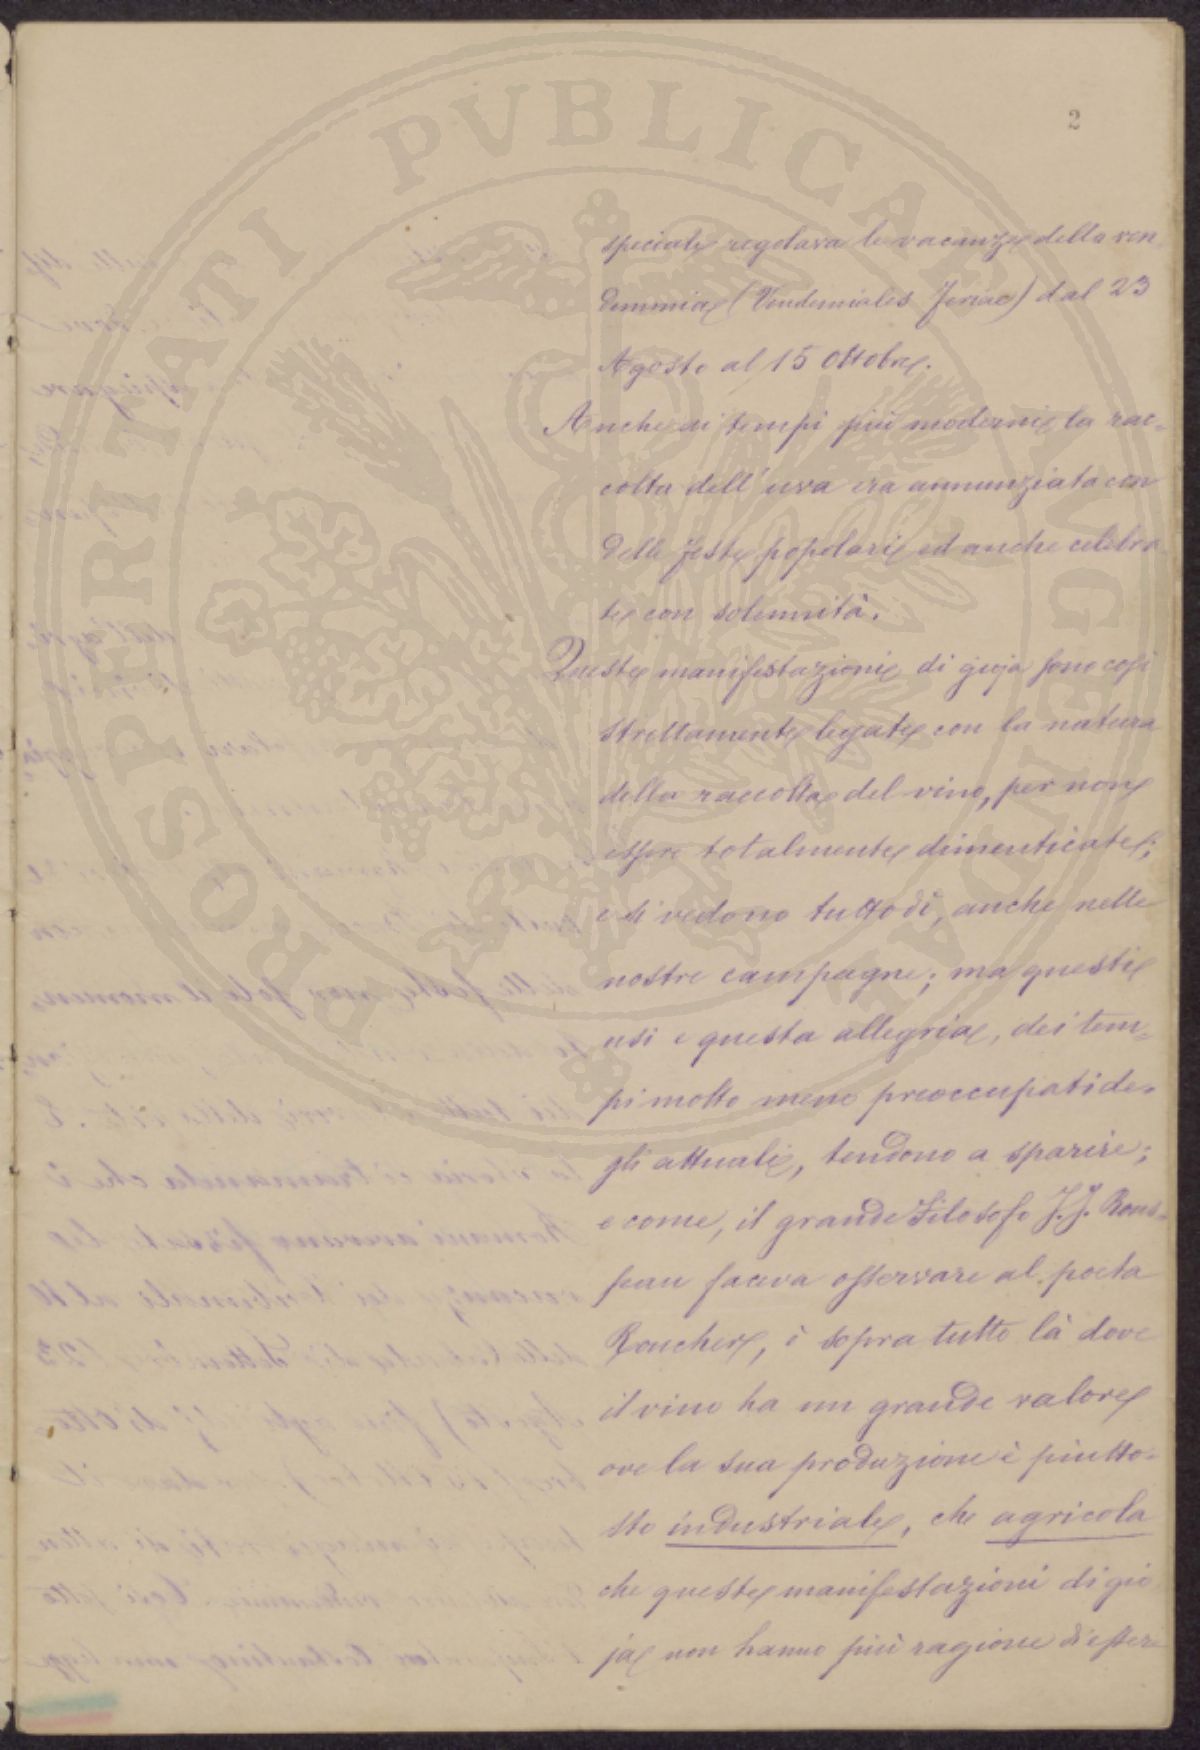 2
speciale regolava le vacanze della ven
demmia (Vendemiales Feriae) dal 23
Agosto al 15 Ottobre.
Anche ai tempi più moderni la rac-
colta dell'uva era annunziata con
delle feste popolari ed anche celebra
te con solennità.
Queste manifestazioni di gioja sono così
strettamente legate con la natura
della raccolta del vino, per non
essere totalmente dimenticate;
e si vedono tuttodì, anche nelle
nostre campagne; ma questi
usi e questa allegria, dei tem-
pi molto meno preoccupati de-
gli attuali, tendono a sparire;
e come, il grande Filosofo J.J. Rous-
seau faceva osservare al poeta
Roucher, è sopra tutto là dove
il vino ha un grande valore
ove la sua produzione è piutto-
sto industriale, che agricola
che queste manifestazioni di gio
ja non hanno più ragione d'essere
PROSPERITATI PVBLICAE AVGENDAE